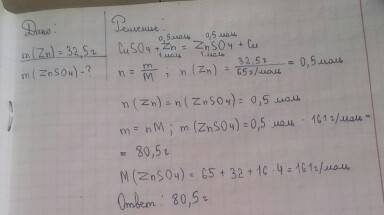 Дано:
m(Zn)=32,5г
m(ZnSO4)-?
Решение:
0,5моль 0,5моль
CuSO4+Zn=ZnSO4+Cu
1моль 1моль
n=m/M; n(Zn)=32,5г/65г/моль=0,5моль
n(Zn)=n(ZnSO4)=0,5 моль
m=nM; m(ZnSO4)=0,5 моль·161г/моль=
=80,5г
M(ZnSO4)=65+32+16·4=161г/моль
Ответ: 80,5г